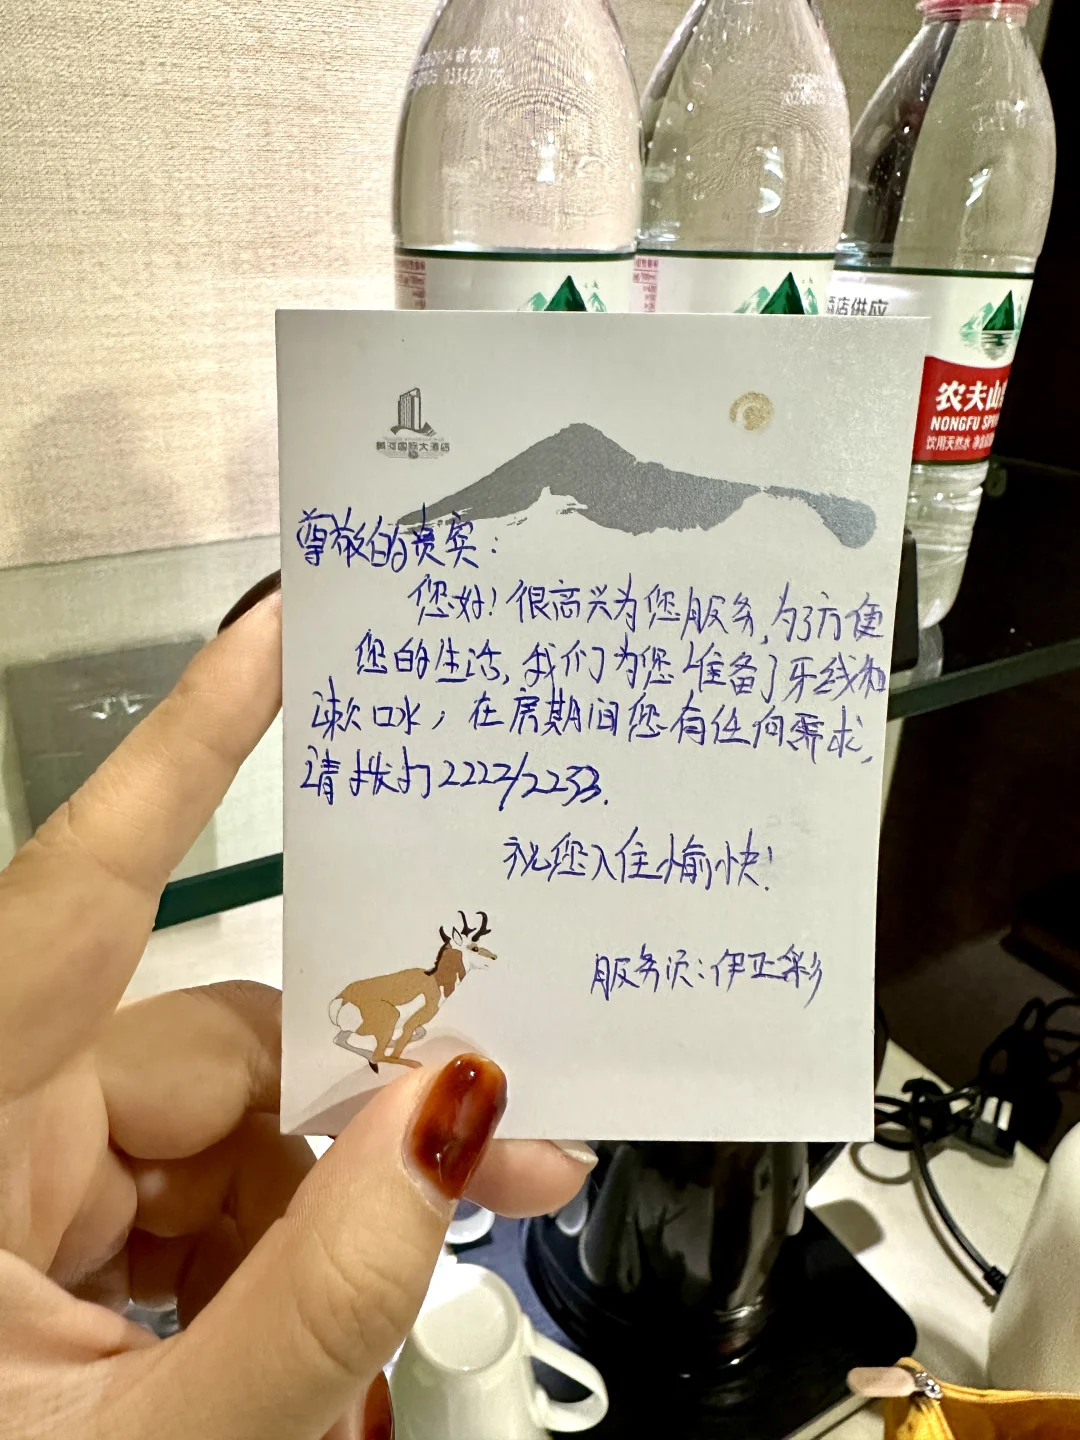 酒店供应
农夫山
NONGFU SP
饮用天然水
黄河国际大酒店
尊敬的贵宾:
您好!很高兴为您服务,为了方便
您的生活,我们为您准备了牙线和
漱口水,在房期间您有任何需求,
请拨打2222/2233.
祝您入住愉快!
服务员:伊正彩